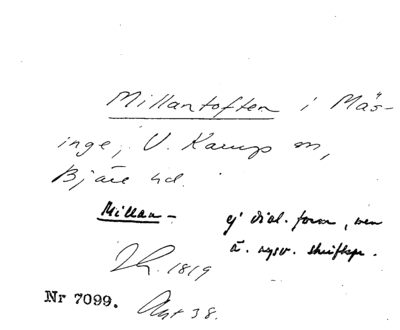 Millantoften i Mäs-
inge, V. Karup sn,
Bjäre hd.
Millan- ej dial. form, utan
ä. nysv. skriftspr.
1819
Nr 7099. 38.